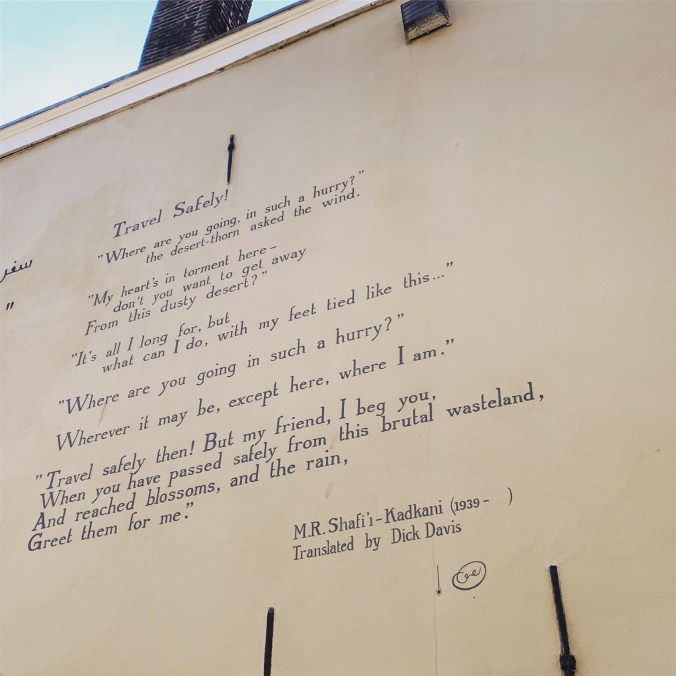 Travel Safely!
"Where are you going, in such a hurry?"
the desert-thorn asked the wind.
"My heart's in torment here –
don't you want to get away
From this dusty desert?"
"It's all I long for, but
what can I do, with my feet tied like this..."
"Where are you going in such a hurry?"
Wherever it may be, except here, where I am."
"Travel safely then! But my friend, I beg you,
When you have passed safely from this brutal wasteland,
And reached blossoms, and the rain,
Greet them for me."
M.R. Shafi'ı-Kadkani (1939 - )
Translated by Dick Davis
سفر
"